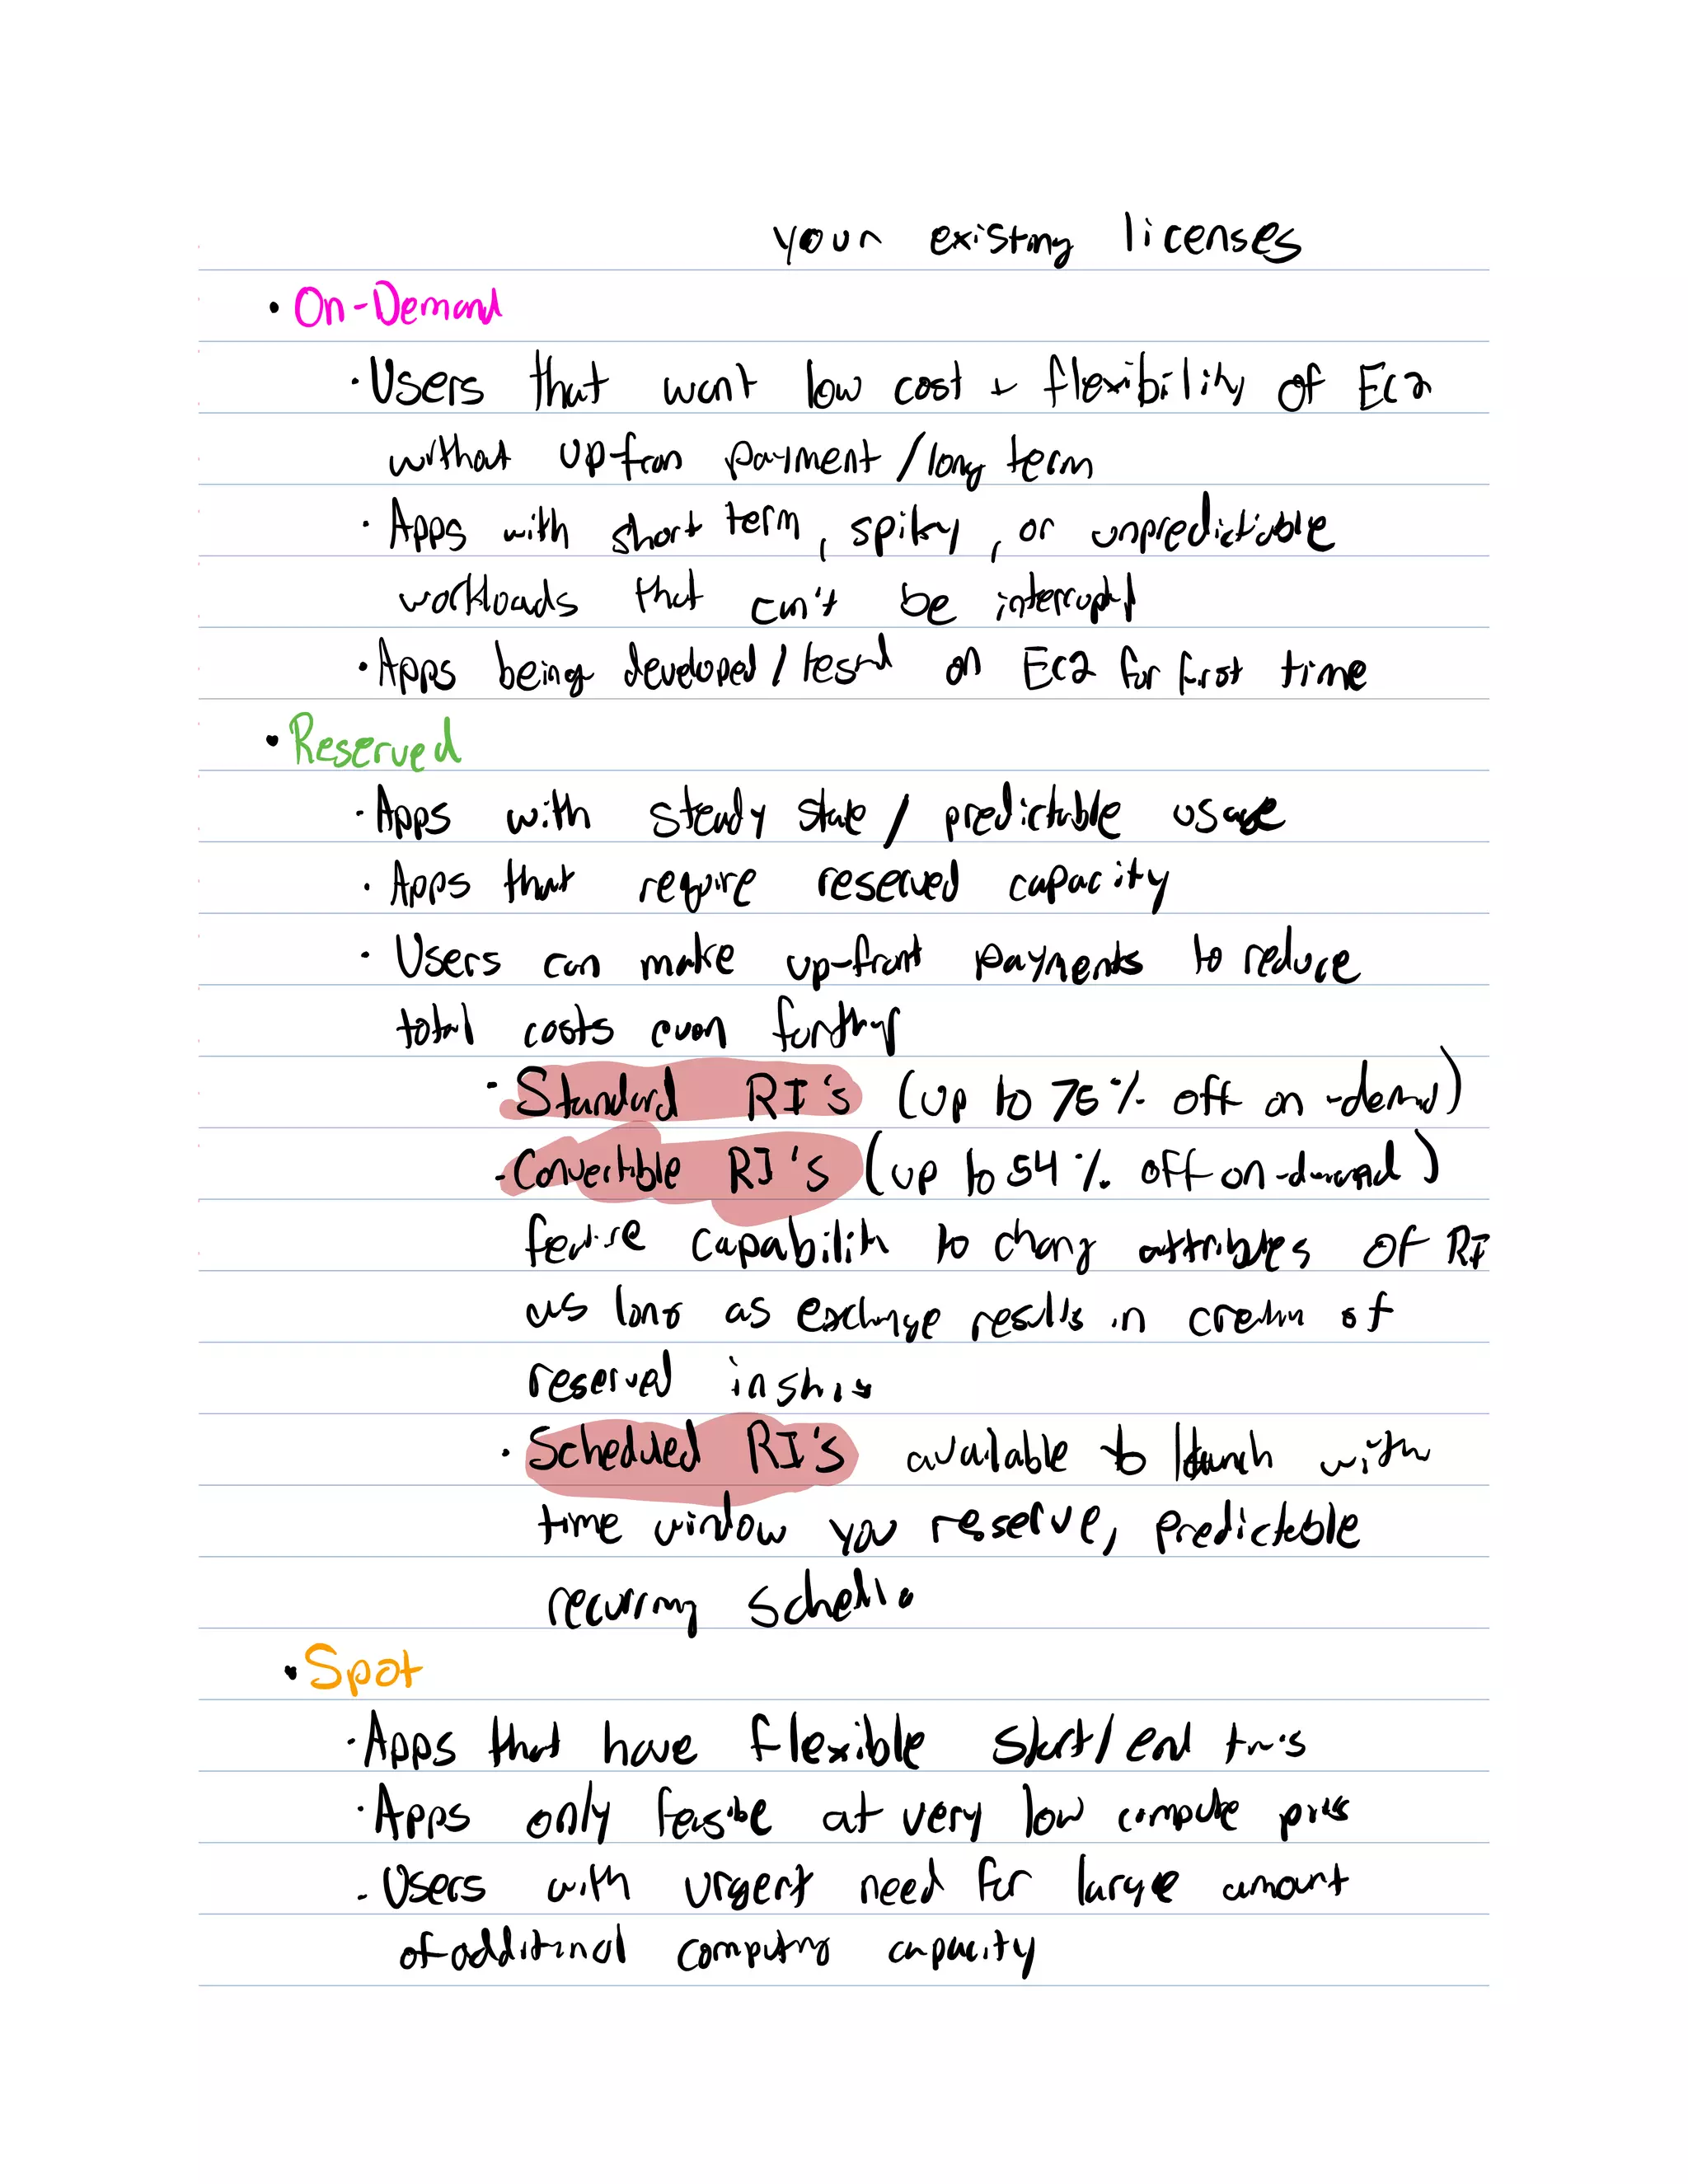 your existing licenses
• On-Demand
· Users that want low cost + flexibility of EC2
without up-fron payment / long term
· Apps with short term, spiky, or unpredictiable
workloads that can't be interrupted
· Apps being developed / tested on EC2 for first time
• Reserved
· Apps with steady state / predictable usage
· Apps that require reserved capacity
· Users can make up-front payments to reduce
total costs even further
· Standard RI's (up to 75% off on-demand)
- Convertible RI's (up to 54% off on-demand)
feature capability to change attributes of RI
as long as exchange results in creation of
reserved
· Scheduled RI's available to launch with
time window you reserve, predictable
recurring
• Spot
· Apps that have flexible start / end
· Apps only feasible at very low compute prices
- Users with urgent need for large amount
of additional computing capacity